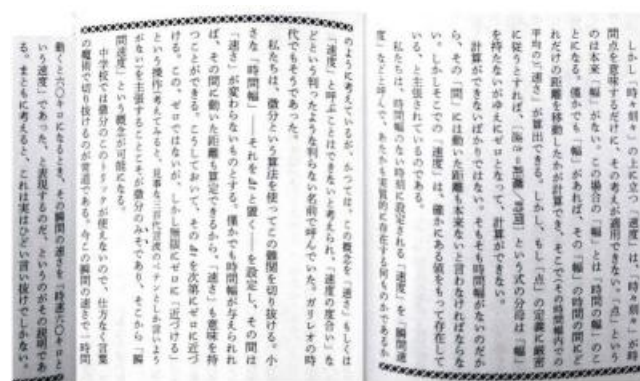 しかし「時々刻々」の上に立つ「速度」は、「時々刻々」が時
間点を意味するだけに、その考えが適用できない。「点」という
のは本来「幅」がない。この場合の「幅」とは「時間の幅」のこ
とになる。僅かでも「幅」があれば、その「幅」の時間の間にど
れだけの距離を移動したかが計算でき、そこで「その時間幅内での
平均の「速さ」が算出できる。しかし、もし「点」の定義に厳密
に従うとすれば、という式の分母は「幅」
を持たないがゆえにゼロとなって、計算ができない。
計算ができないばかりではない。そもそも時間幅がないのだか
ら、その「間」には動いた距離も本来ないと言わなければならな
い。しかしそこでの「速度」は、確かにある値をもって存在して
いる、と主張されているのである。
私たちは、時間幅のない時刻に設定される「速度」を「瞬間速
度」などと呼んで、あたかも実質的に存在する何ものかであるか
のように考えているが、かつては、この概念を「速さ」もしくは
「速度」と呼ぶことはできないと考えられ、「速度の度合い」な
どという判ったような判らない名前で呼んでいた。ガリレオの時
代でもそうであった。
私たちは、微分という算法を使ってこの難関を切り抜ける。小
さな「時間幅」――それを⊿tと置く――を設定し、その間は
「速さ」が変わらないものとする。僅かでも時間幅が与えられれ
ば、その間に動いた距離も算定できるから、「速さ」も意味を持
つことができる。こうしておいて、その⊿tを次第にゼロに近づ
ける。この、ゼロではないが、しかし無限にゼロに「近づける」
という操作（考えてみると、見事な二百代言流のペテンとしか言いよう
がない）を主張することこそが微分のみそであり、そこから「瞬
間速度」という概念が可能になる。
中学校では微分のこのトリックが使えないので、仕方なく言葉
の魔術で切り抜けるのが常道である。今この瞬間の速さで一時間
動くと六〇キロになるとき、その瞬間の速さを「時速六〇キロと
いう速度」であった、と表現するのだ、というのがその説明であ
る。まともに考えると、これは実はひどい言い抜けでしかない。